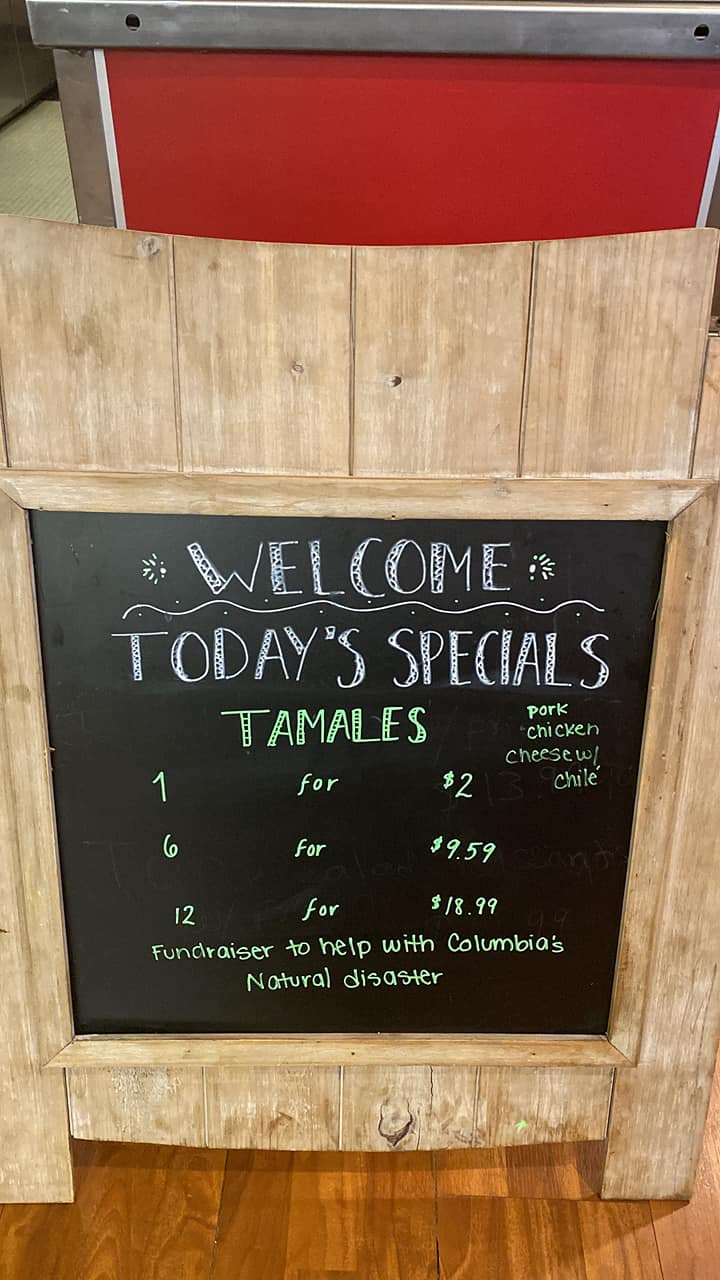 WELCOME
TODAY'S SPECIALS
TAMALES
pork
chicken
cheese w/
chilé
1 for $2
6 for $9.59
12 for $18.99
Fundraiser to help with Columbia's
Natural disaster